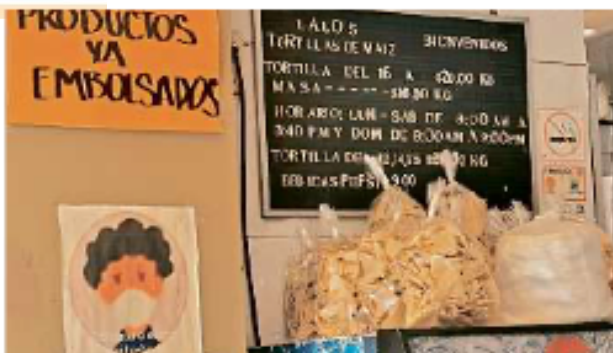 PRODUCTOS
YA
EMBOLSADOS
LALOS
TORTILLAS DE MAIZ BIENVENIDOS
TORTILLA DEL 16 A $20.00 KG
MASA------ KG
HORARIO: LUN-SAB DE 8:00 AM A
3:40 PM Y DOM DE 8:00AM A 2:00PM
TORTILLA DEL KG
BEBIDAS 9.00